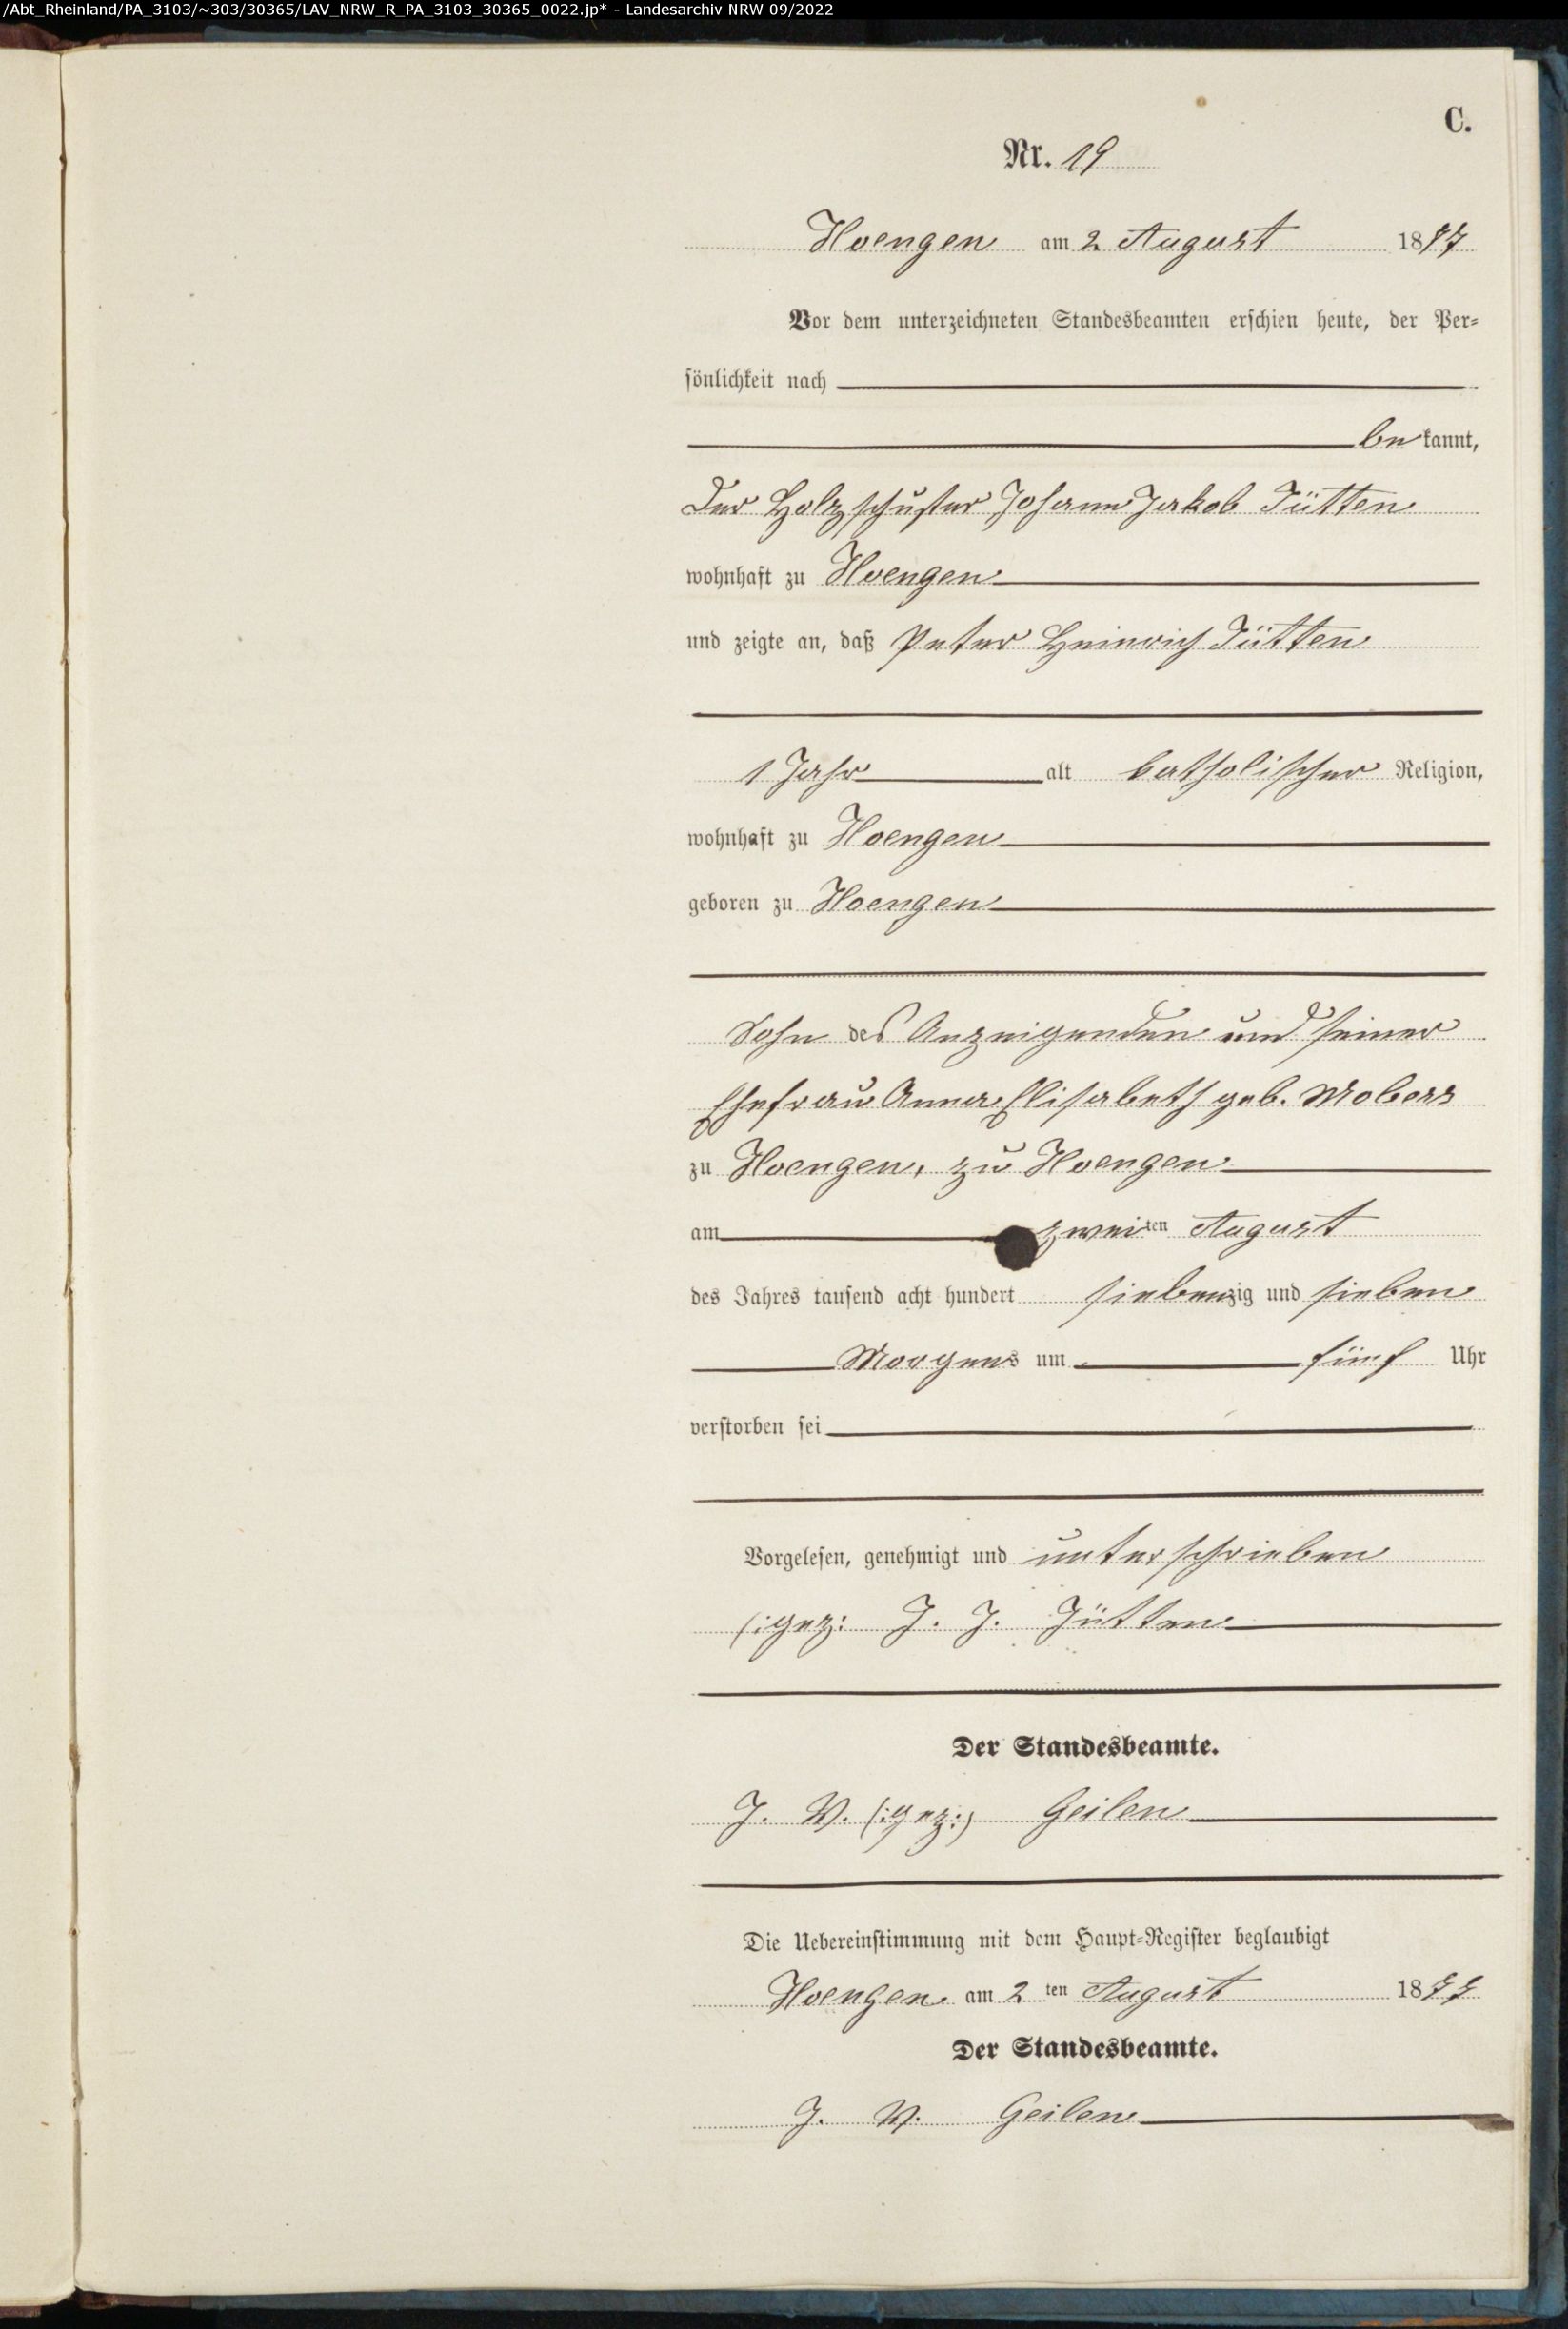 /Abt_Rheinland/PA_3103/~303/30365/LAV_NRW_R_PA_3103_30365_0022.jp* - Landesarchiv NRW 09/2022
C.
Nr. 19
Hoengen am 2 August 1877
Vor dem unterzeichneten Standesbeamten erschien heute, der Per-
sönlichkeit nach
bekannt,
der Holzschuster Johann Jakob Jütten
wohnhaft zu Hoengen
und zeigte an, daß Peter Heinrich Jütten
1 Jahr alt katholischer Religion,
wohnhaft zu Hoengen
geboren zu Hoengen
Sohn des Anzeigenden und seiner
Ehefrau Anna Elisabeth geb. Mobers
zu Hoengen, zu Hoengen
am zweiten August
des Jahres tausend acht hundert siebenzig und sieben
Morgens um fünf Uhr
verstorben sei
Vorgelesen, genehmigt und unterschrieben
(:gez: J. J. Jütten
Der Standesbeamte.
J. V. (:gez:) Geilen
Die Uebereinstimmung mit dem Haupt-Register beglaubigt
Hoengen am 2 ten August 1877
Der Standesbeamte.
J. V. Geilen